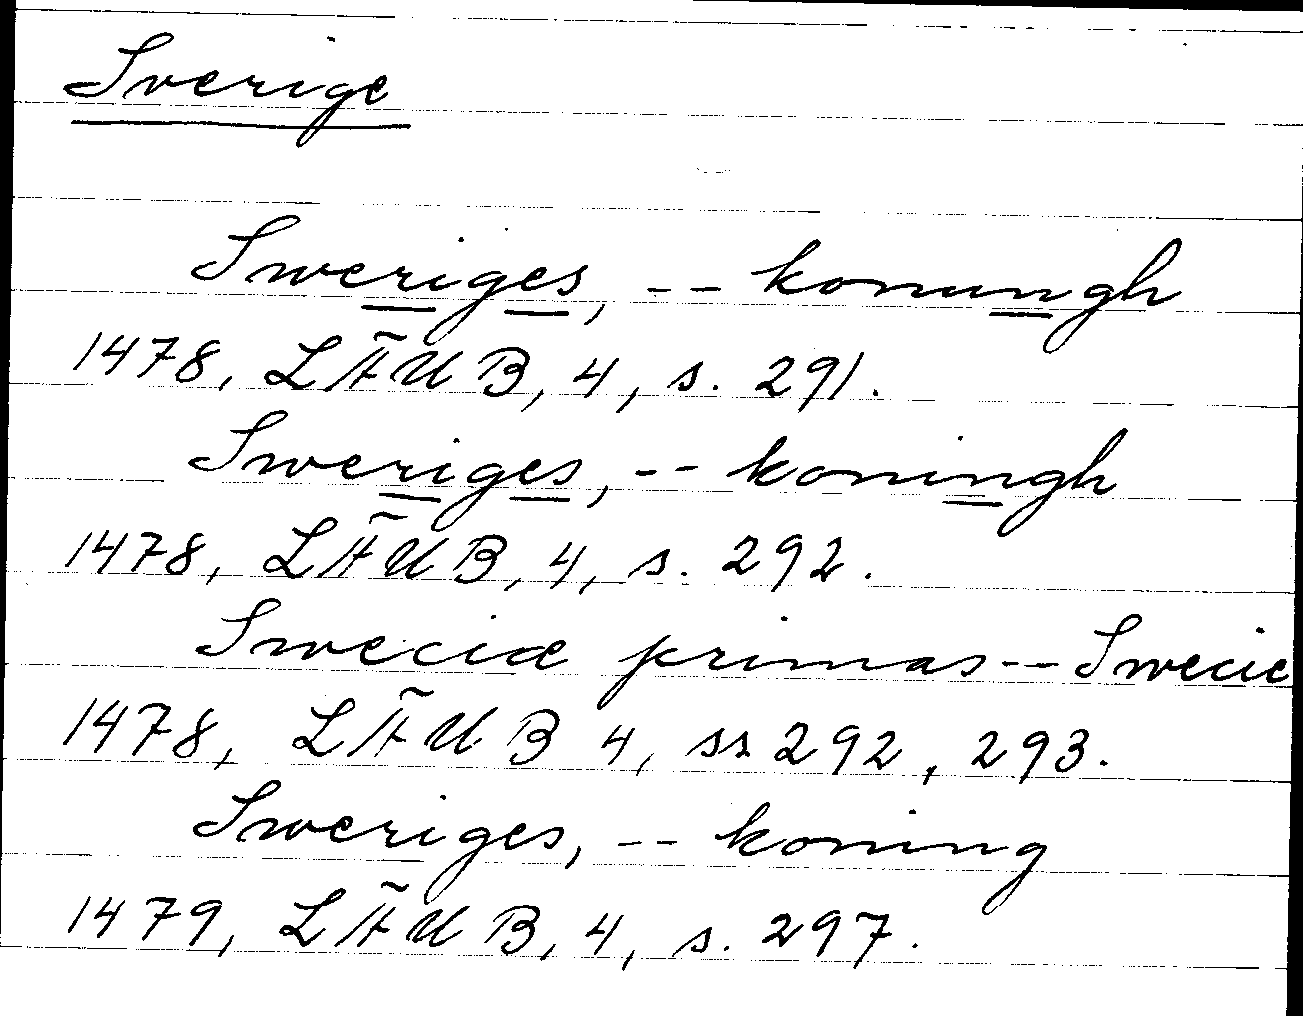 Sverige
Sweriges, -- konungh
1478, LÄUB, 4, s. 291.
Sweriges, -- koningh
1478, LÄUB, 4, s. 292.
Sweciæ primas -- Swecie
1478, LÄUB 4, ss 292, 293.
Sweriges, -- koning
1479, LÄUB, 4, s. 297.